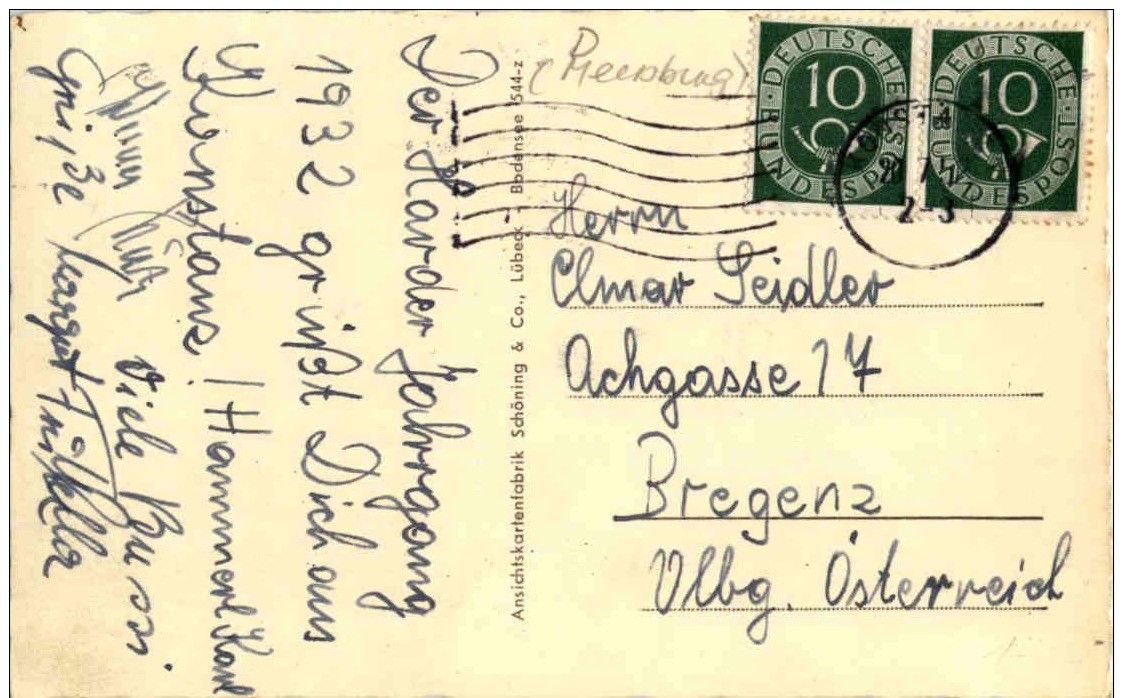 Der Harder Jahrgang
1932 grüßt Dich aus
Konstanz! Hammerl Karl
Viele Bussi
Grüße Margut
Ansichtskartenfabrik Schöning & Co., Lübeck - Bodensee 544-z
(Meersburg)
DEUTSCHE BUNDESPOST
10
DEUTSCHE BUNDESPOST
10
2-3
Herrn
Elmar Seidler
Achgasse 17
Bregenz
Vlbg. Österreich